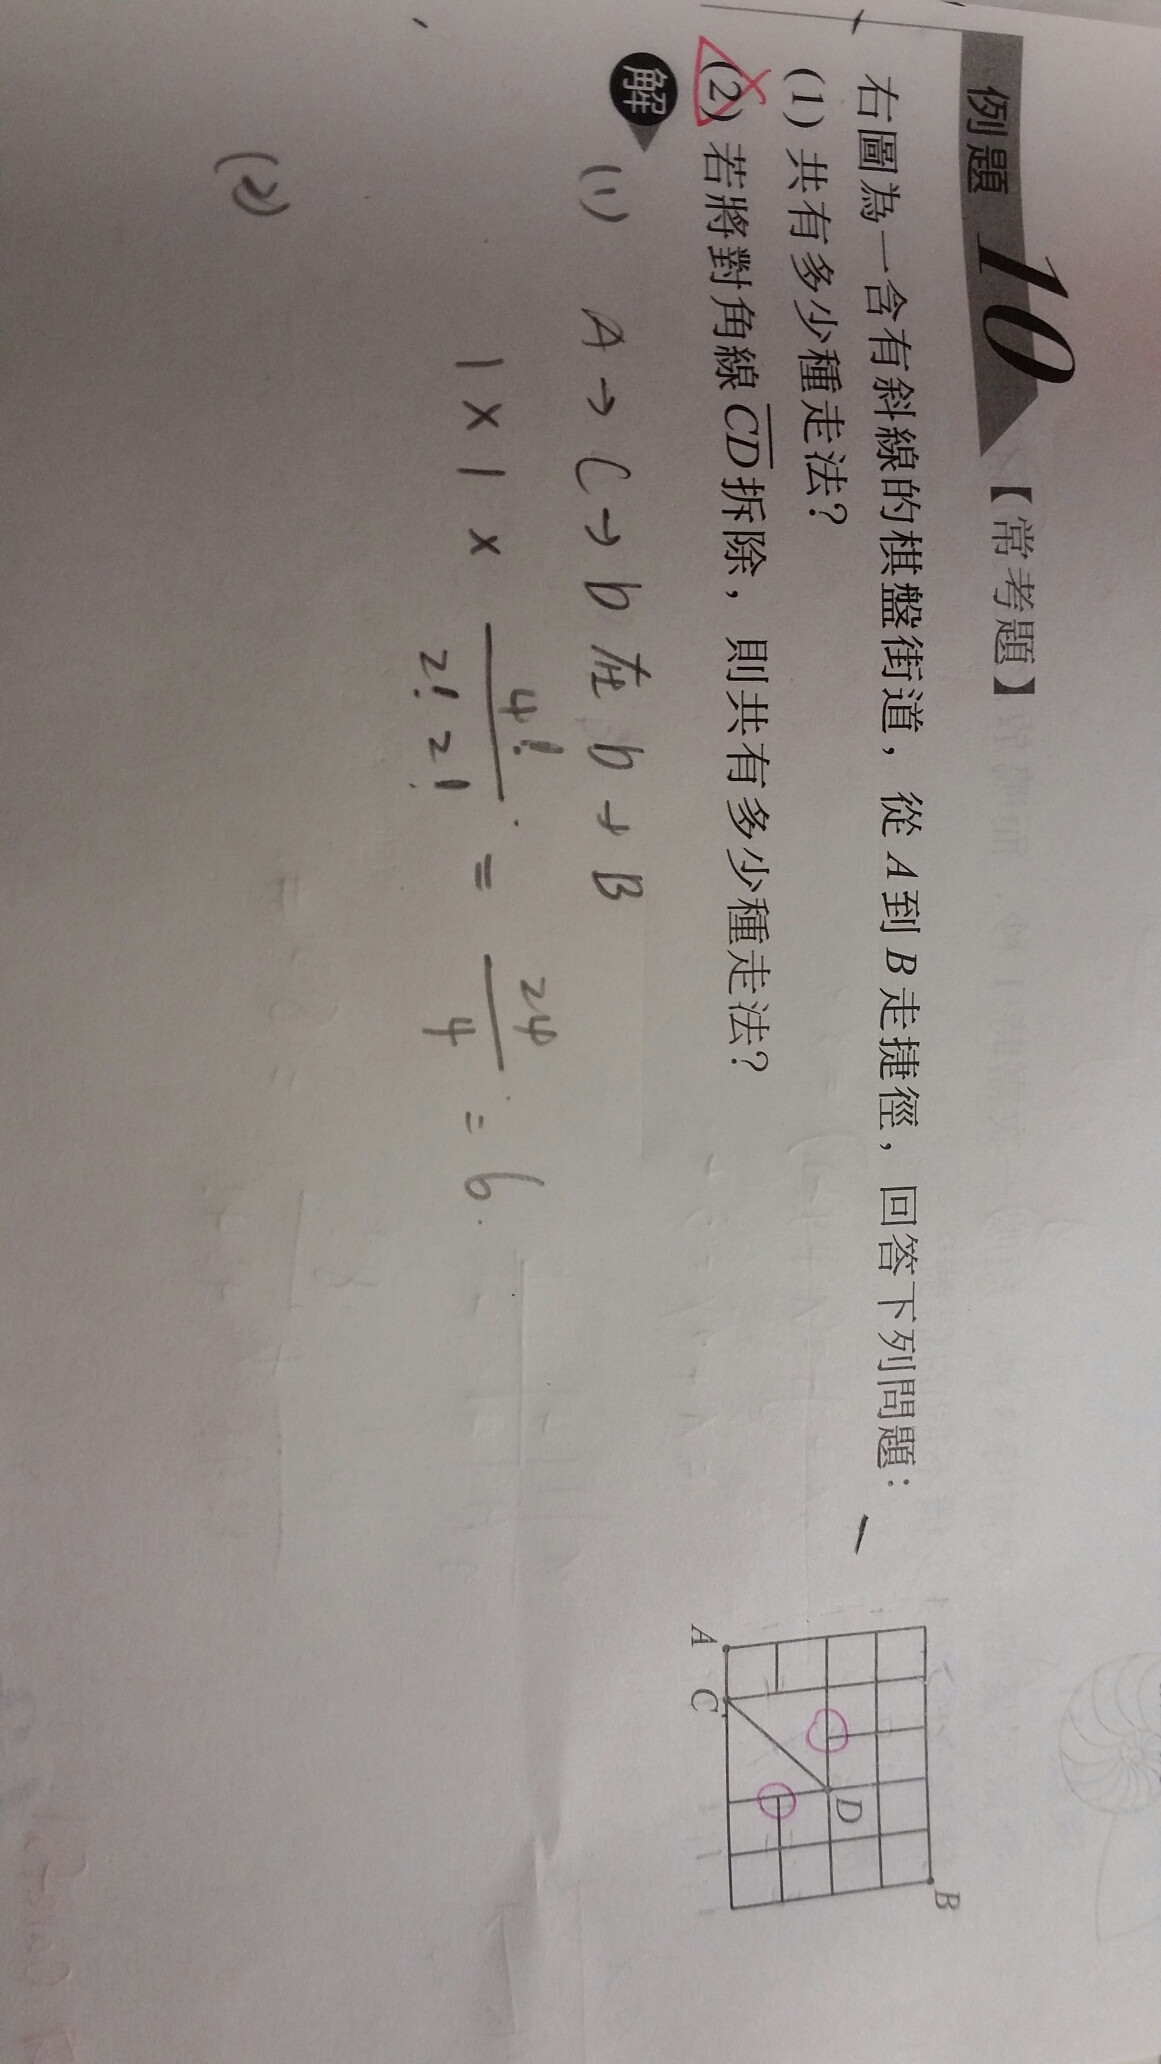 例題 10 【常考題】
右圖為一含有斜線的棋盤街道，從 A 到 B 走捷徑，回答下列問題：
(1) 共有多少種走法？
(2) 若將對角線 CD 拆除，則共有多少種走法？
B
D
A
C
解
(1) A → C → D 在 D → B
1 × 1 × 4! / 2! 2! = 24 / 4 = 6
(2)